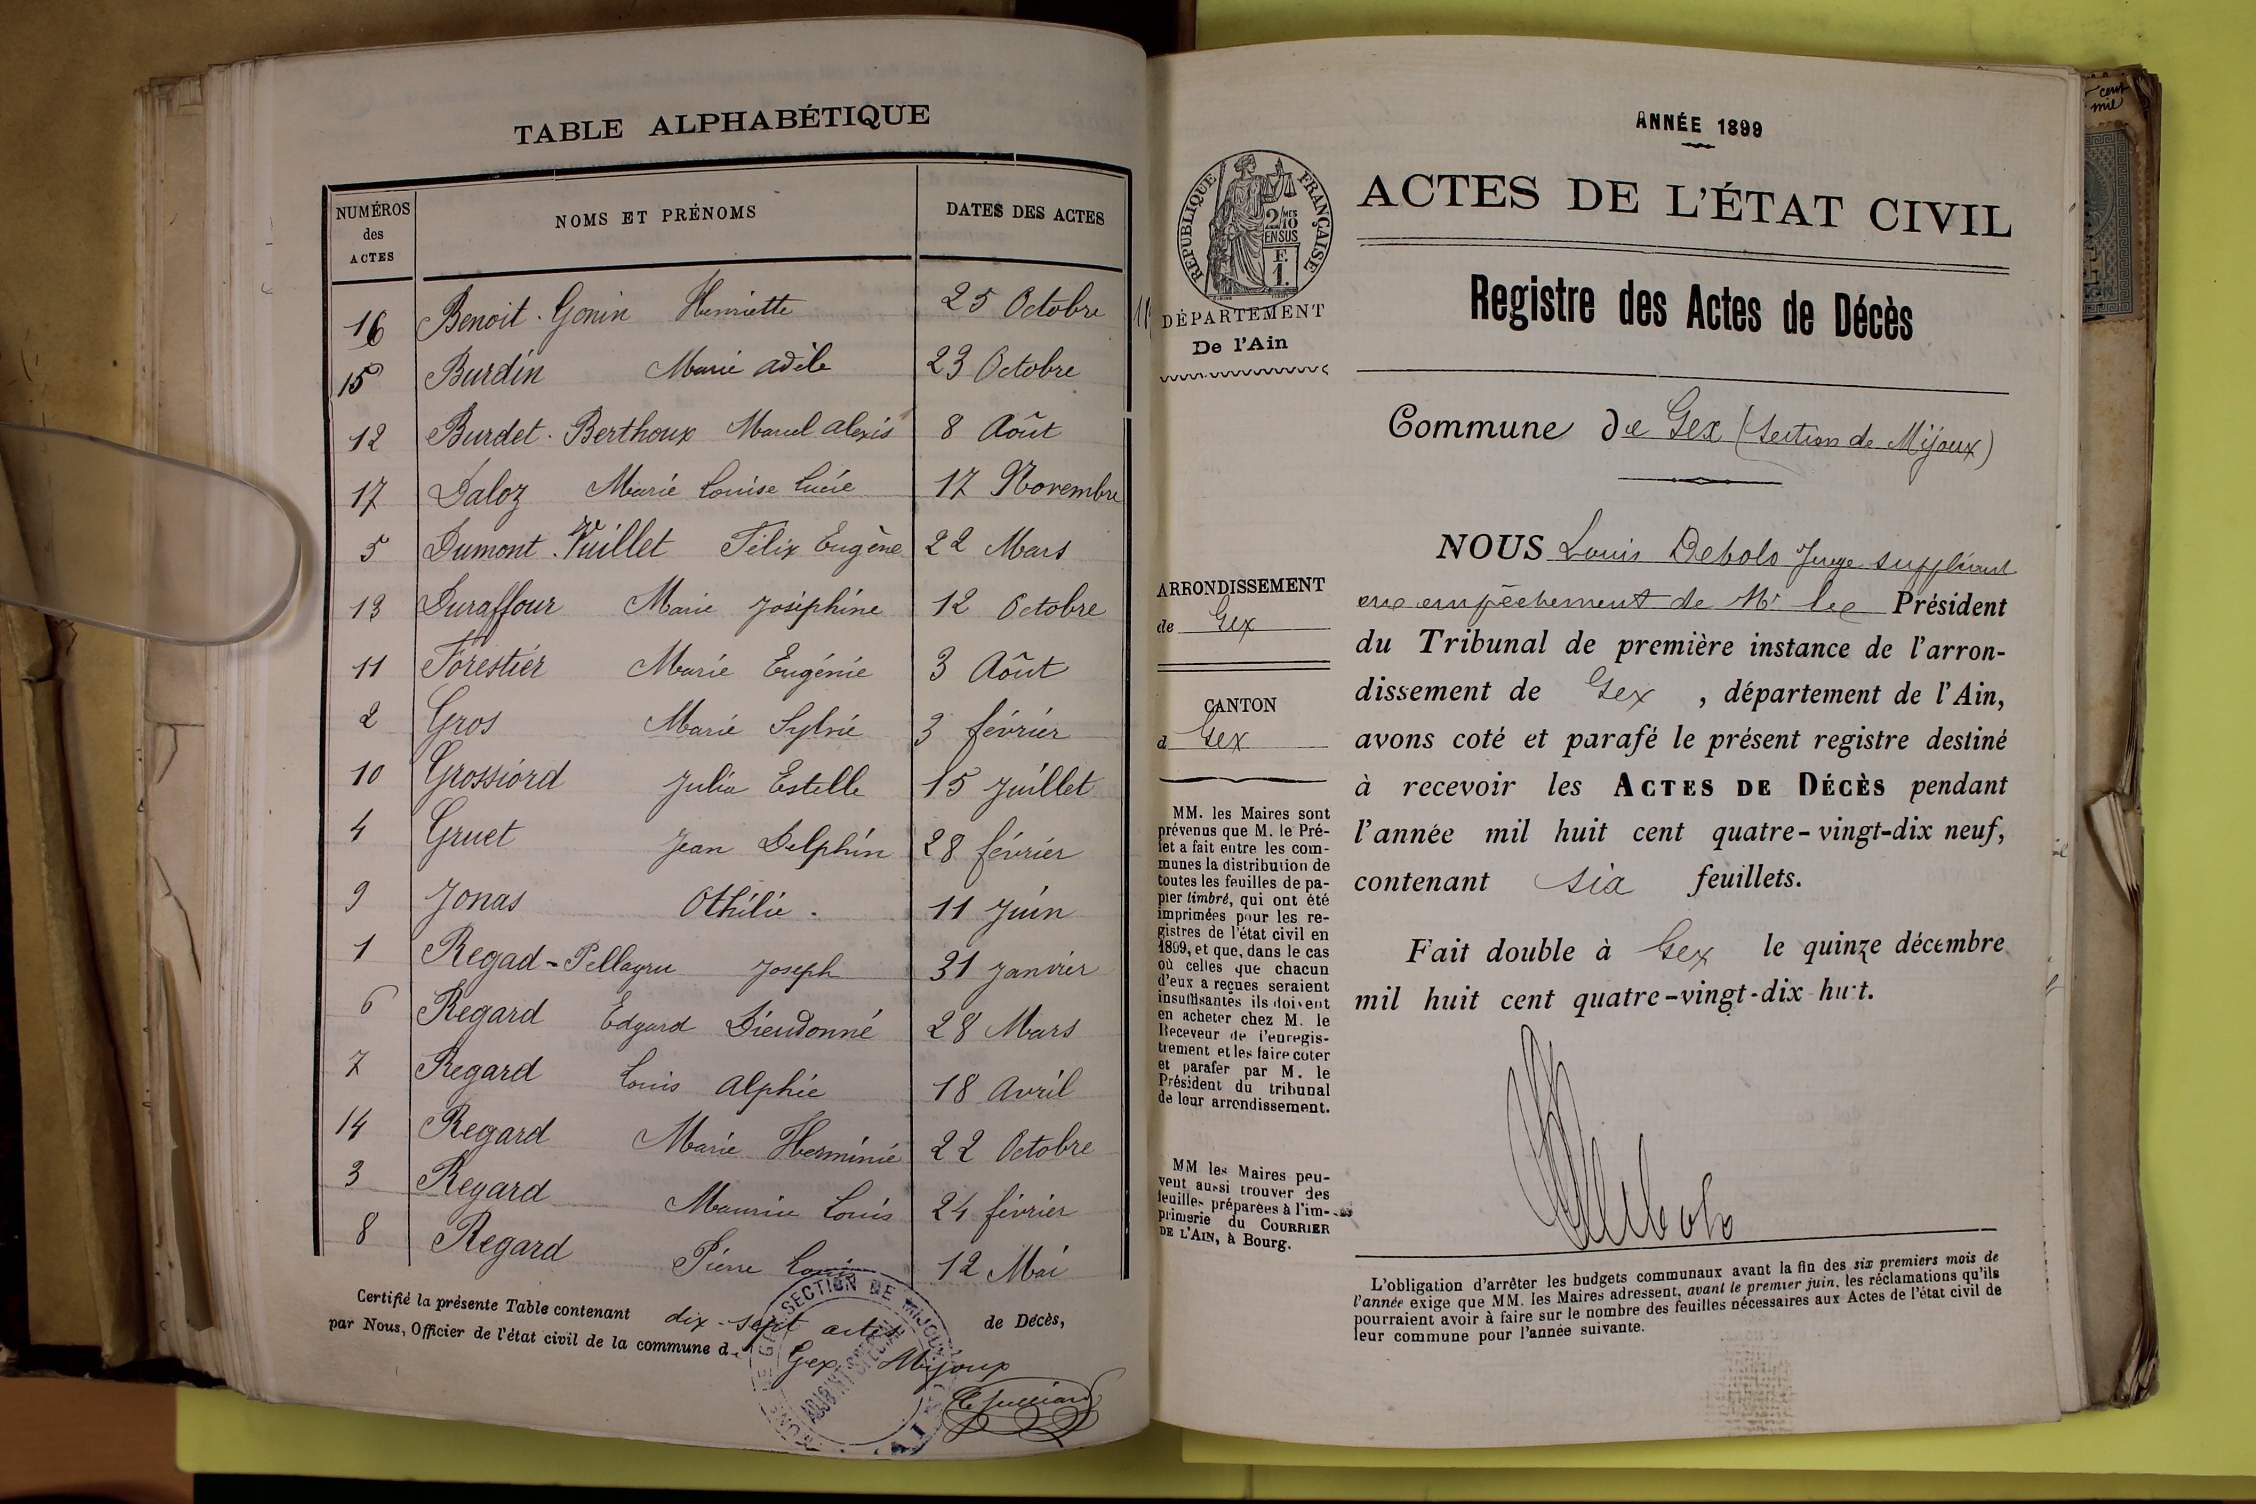 TABLE ALPHABÉTIQUE
NUMÉROS des ACTES NOMS ET PRÉNOMS DATES DES ACTES
16 Benoit-Gonin Henriette 25 Octobre
15 Burdin Marie Adèle 23 Octobre
12 Burdet-Berthoux Marcel Alexis 8 Août
17 Daloz Marie Louise Lucie 17 Novembre
5 Dumont-Vuillet Félix Eugène 22 Mars
13 Duraffour Marie Joséphine 12 Octobre
11 Forestier Marie Eugénie 3 Août
2 Gros Marie Sylvie 3 février
10 Grossiord Julia Estelle 15 Juillet
4 Gruet Jean Delphin 28 février
9 Jonas Othilie. 11 Juin
1 Regad-Pellagru Joseph 31 Janvier
6 Regard Edgard Dieudonné 28 Mars
7 Regard Louis Alphée 18 Avril
14 Regard Marie Herminie 22 Octobre
3 Regard Maurice Louis 24 février
8 Regard Pierre Louis 12 Mai
Certifié la présente Table contenant dix-sept actes de Décès,
par Nous, Officier de l'état civil de la commune de Gex Mijoux
SECTION DE MIJOUX
ANNÉE 1899
RÉPUBLIQUE FRANÇAISE
2/10 MES
EN SUS
F.
1.
ACTES DE L'ÉTAT CIVIL
DÉPARTEMENT
De l'Ain
Registre des Actes de Décès
Commune de Gex (Section de Mijoux)
ARRONDISSEMENT
de Gex
CANTON
d Gex
MM. les Maires sont
prévenus que M. le Pré-
fet a fait entre les com-
munes la distribution de
toutes les feuilles de pa-
pier timbré, qui ont été
imprimées pour les re-
gistres de l'état civil en
1899, et que, dans le cas
où celles que chacun
d'eux a reçues seraient
insuffisantes ils doivent
en acheter chez M. le
Receveur de l'enregis-
trement et les faire coter
et parafer par M. le
Président du tribunal
de leur arrondissement.
MM les Maires peu-
vent aussi trouver des
feuilles préparées à l'im-
primerie du COURRIER
DE L'AIN, à Bourg.
NOUS Louis Debolo Juge suppléant
en empêchement de Mr le Président
du Tribunal de première instance de l'arron-
dissement de Gex, département de l'Ain,
avons coté et parafé le présent registre destiné
à recevoir les ACTES DE DÉCÈS pendant
l'année mil huit cent quatre-vingt-dix neuf,
contenant six feuillets.
Fait double à Gex le quinze décembre
mil huit cent quatre-vingt-dix huit.
Debolo
L'obligation d'arrêter les budgets communaux avant la fin des six premiers mois de
l'année exige que MM. les Maires adressent, avant le premier juin, les réclamations qu'ils
pourraient avoir à faire sur le nombre des feuilles nécessaires aux Actes de l'état civil de
leur commune pour l'année suivante.
cent
mil